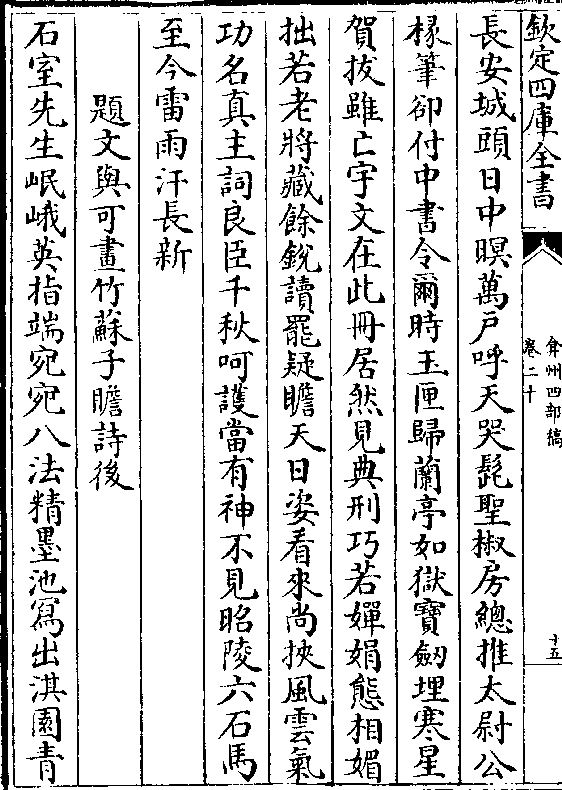 欽定四庫全書
弇州四部稿
卷二十
十五
長安城頭日中暝萬户呼天哭髭聖椒房總推太尉公
椽筆卻付中書令爾時玉匣歸蘭亭如獄寶劒埋寒星
賀拔雖亡宇文在此冊居然見典刑巧若嬋娟態相媚
拙若老將藏餘銳讀罷疑瞻天日姿看來尚挾風雲氣
功名真主詞良臣千秋呵護當有神不見昭陵六石馬
至今雷雨汗長新
題文與可畫竹蘇子瞻詩後
石室先生岷峨英指端宛宛八法精墨池寫出淇園青